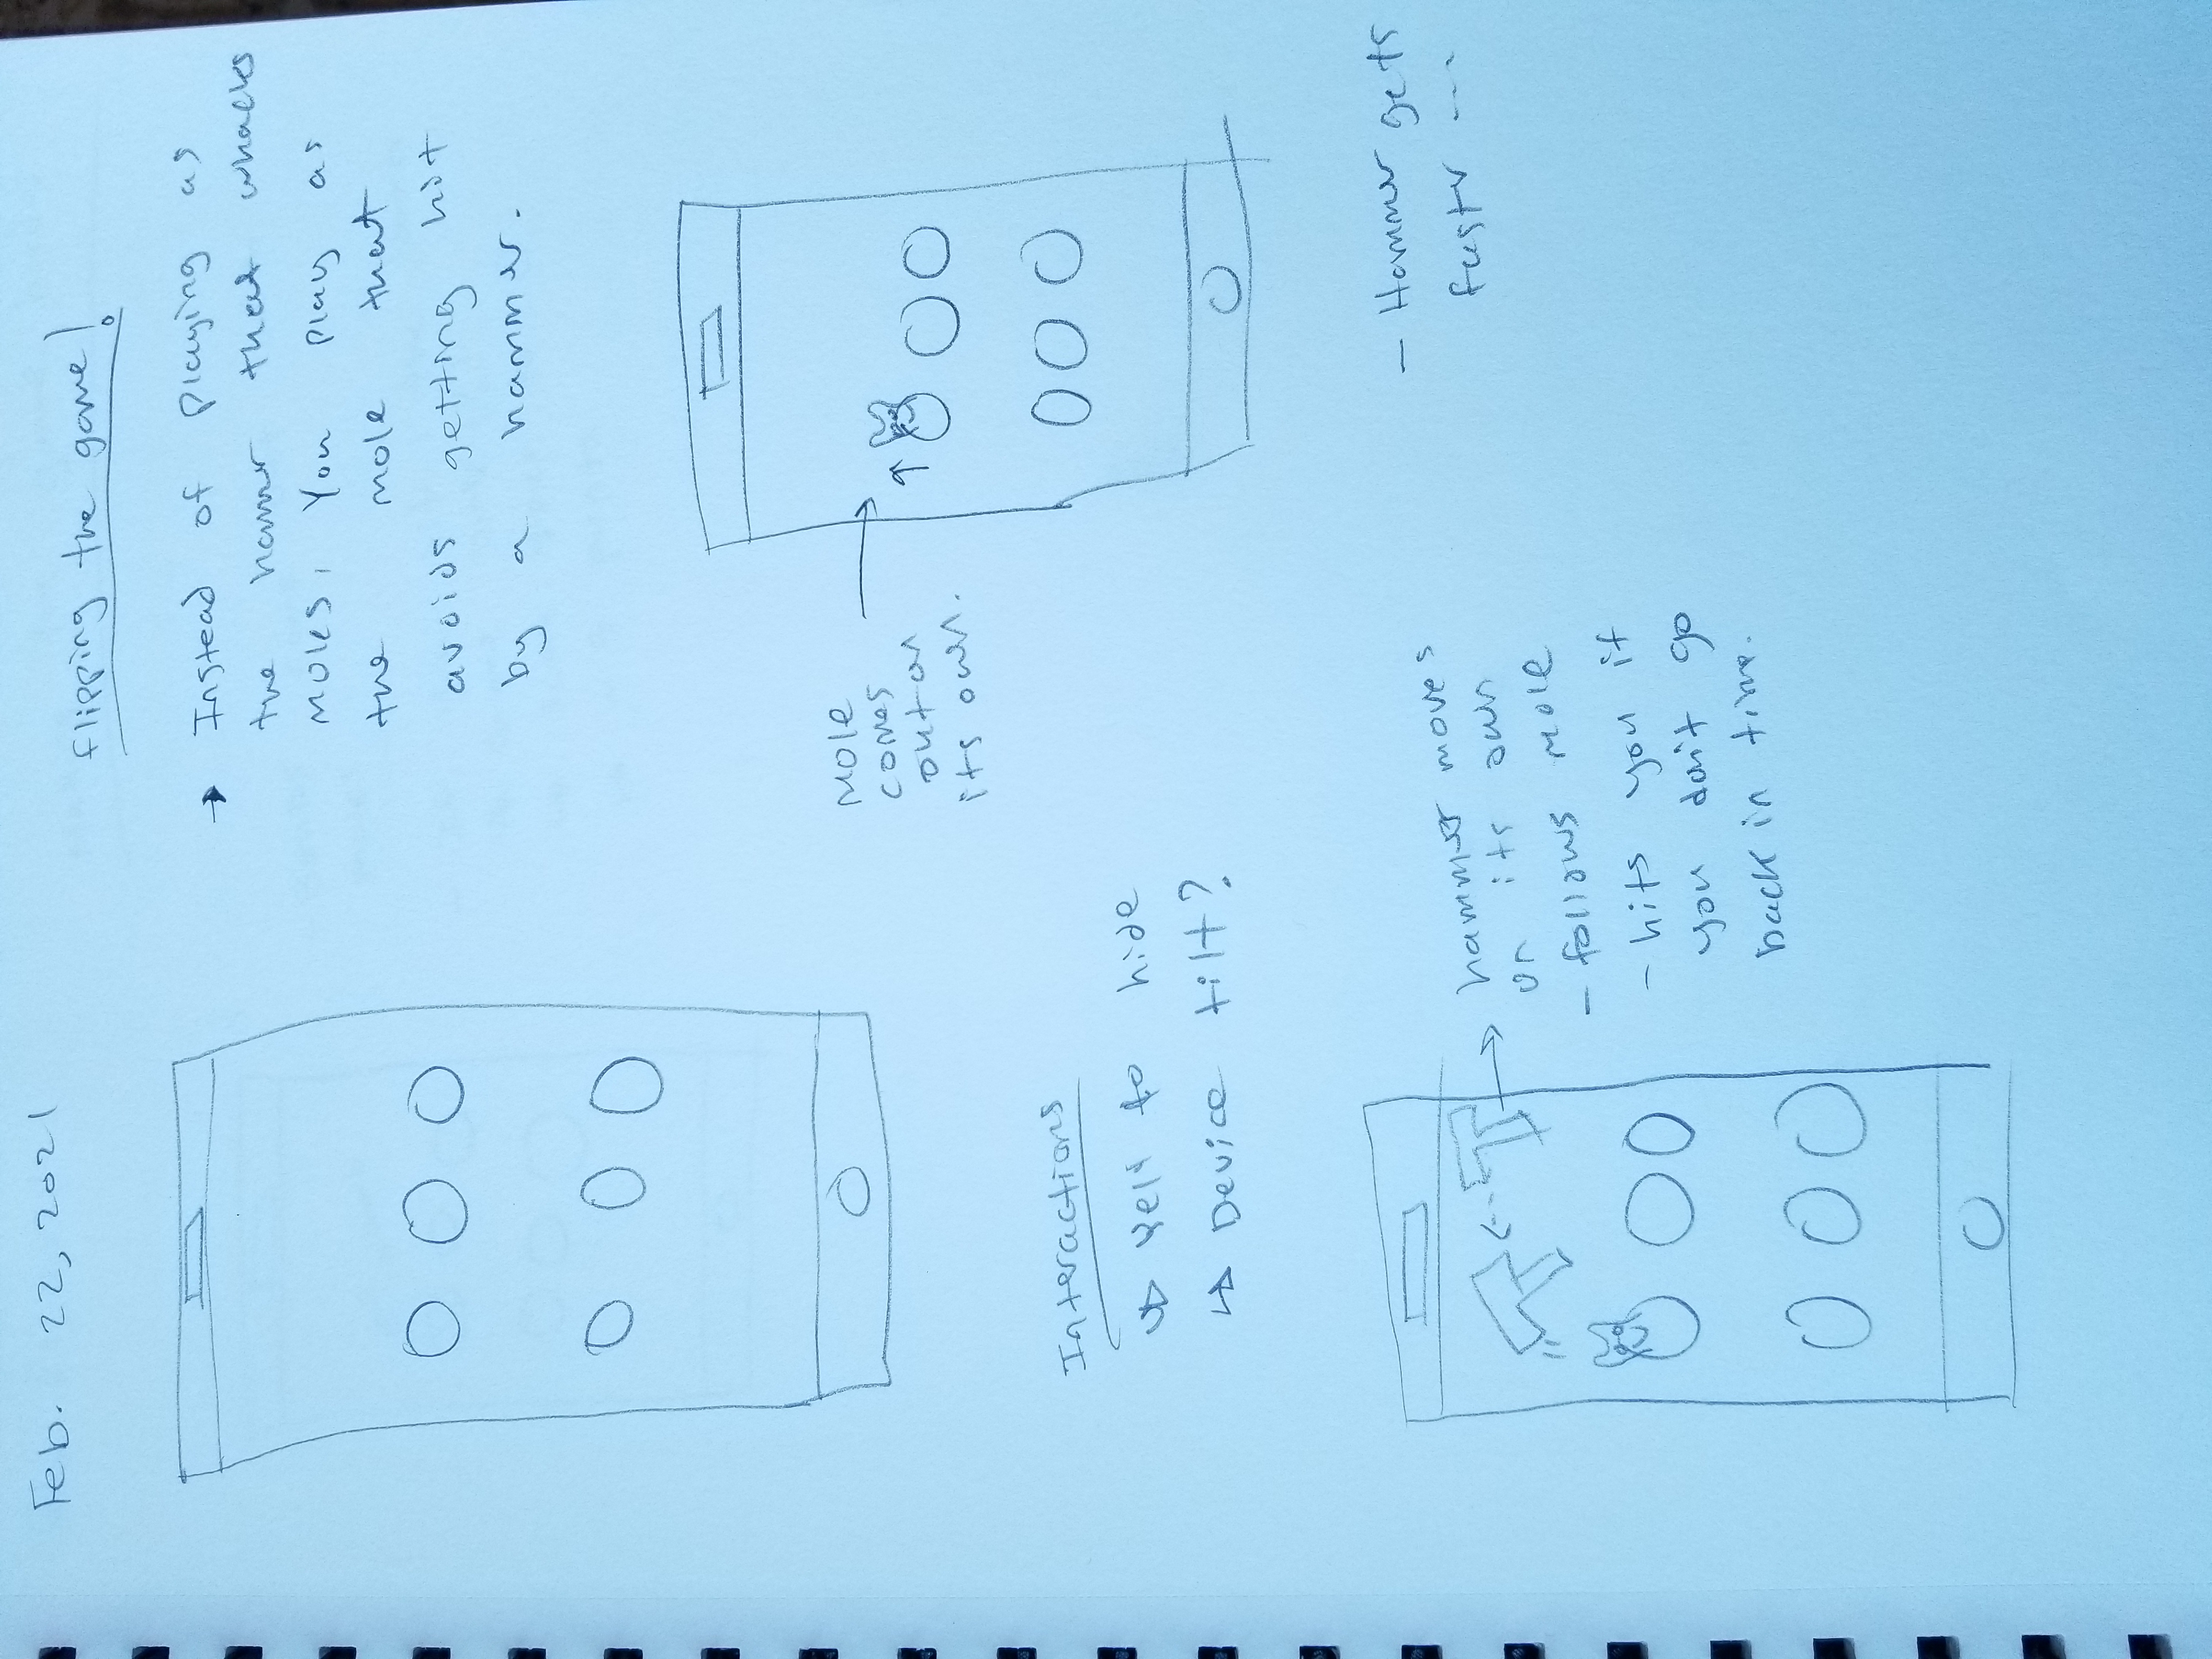 Feb. 22, 2021
Flipping the game!
→ Instead of playing as
the hammer that whacks
moles, You play as
the mole that
avoids getting hit
by a hammer.
Mole
comes
out on
its own.
Interactions
↳ Yell to hide
↳ Device tilt?
hammer moves
on its own
- follows mole
- hits you if
you don't go
back in time.
- Hammer gets
faster ---